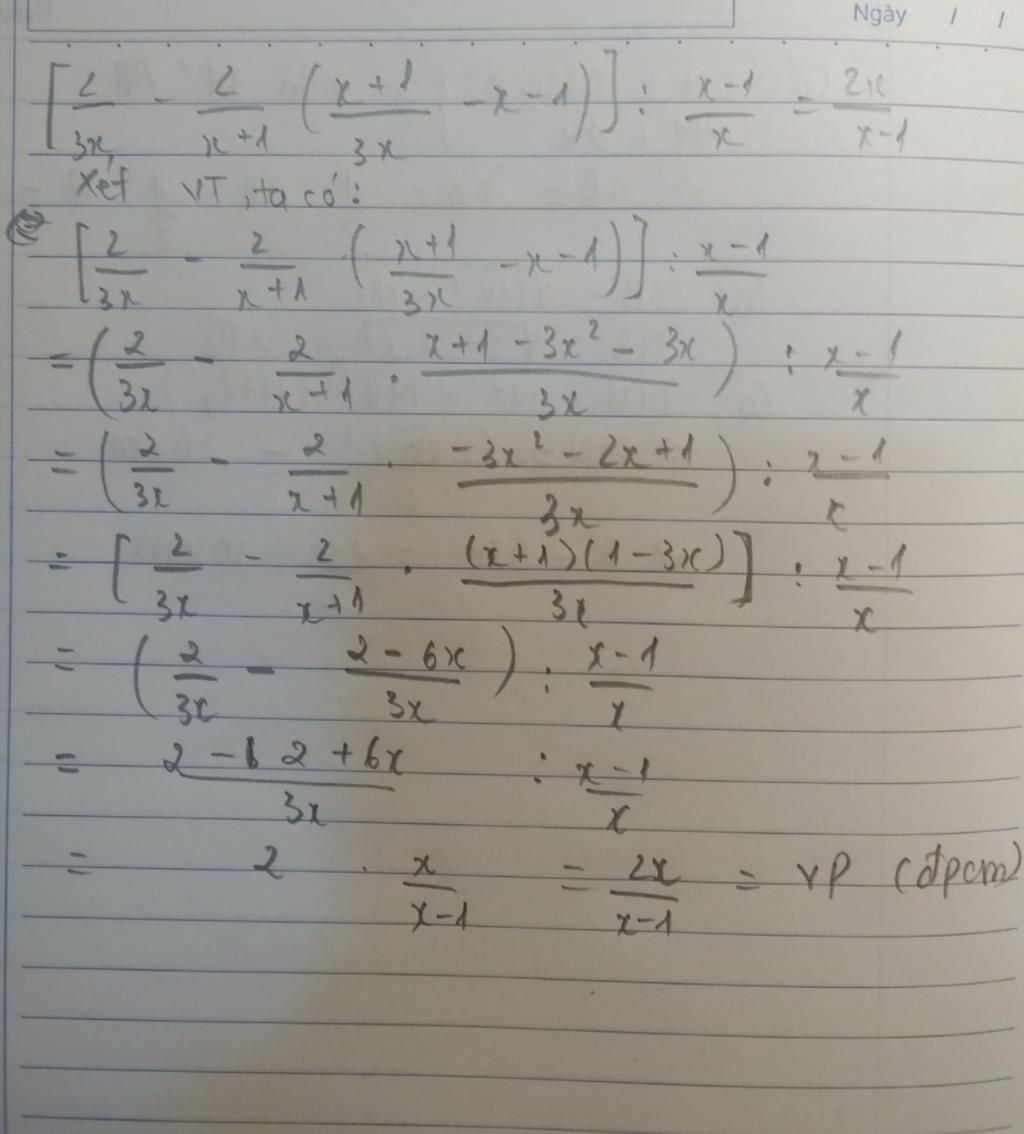 Ngày / /
[2/3x - 2/x+1 (x+1/3x - x - 1)] : x-1/x = 2x/x-1
Xét VT, ta có:
[2/3x - 2/x+1 · (x+1/3x - x - 1)] : x-1/x
= (2/3x - 2/x+1 · x+1-3x²-3x/3x) : x-1/x
= (2/3x - 2/x+1 · -3x²-2x+1/3x) : x-1/x
= [2/3x - 2/x+1 · (x+1)(1-3x)/3x] : x-1/x
= (2/3x - 2-6x/3x) : x-1/x
= 2-2+6x/3x : x-1/x
= 2 · x/x-1 = 2x/x-1 = VP (đpcm)